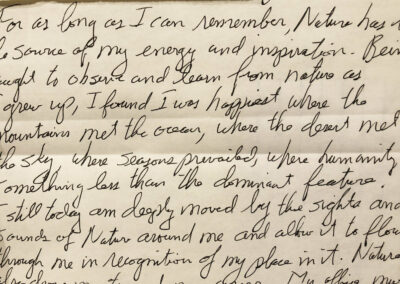 For as long as I can remember, Nature has
source of my energy and inspiration. Being
taught to observe and learn from nature as
grew up, I found I was happiest where the
mountains met the ocean, where the desert met
the sky where seasons prevailed, where humanity
something less than the dominant feature.
I still today am deeply moved by the sights and
sounds of Nature around me and allow it to flow
through me in recognition of my place in it. Nature